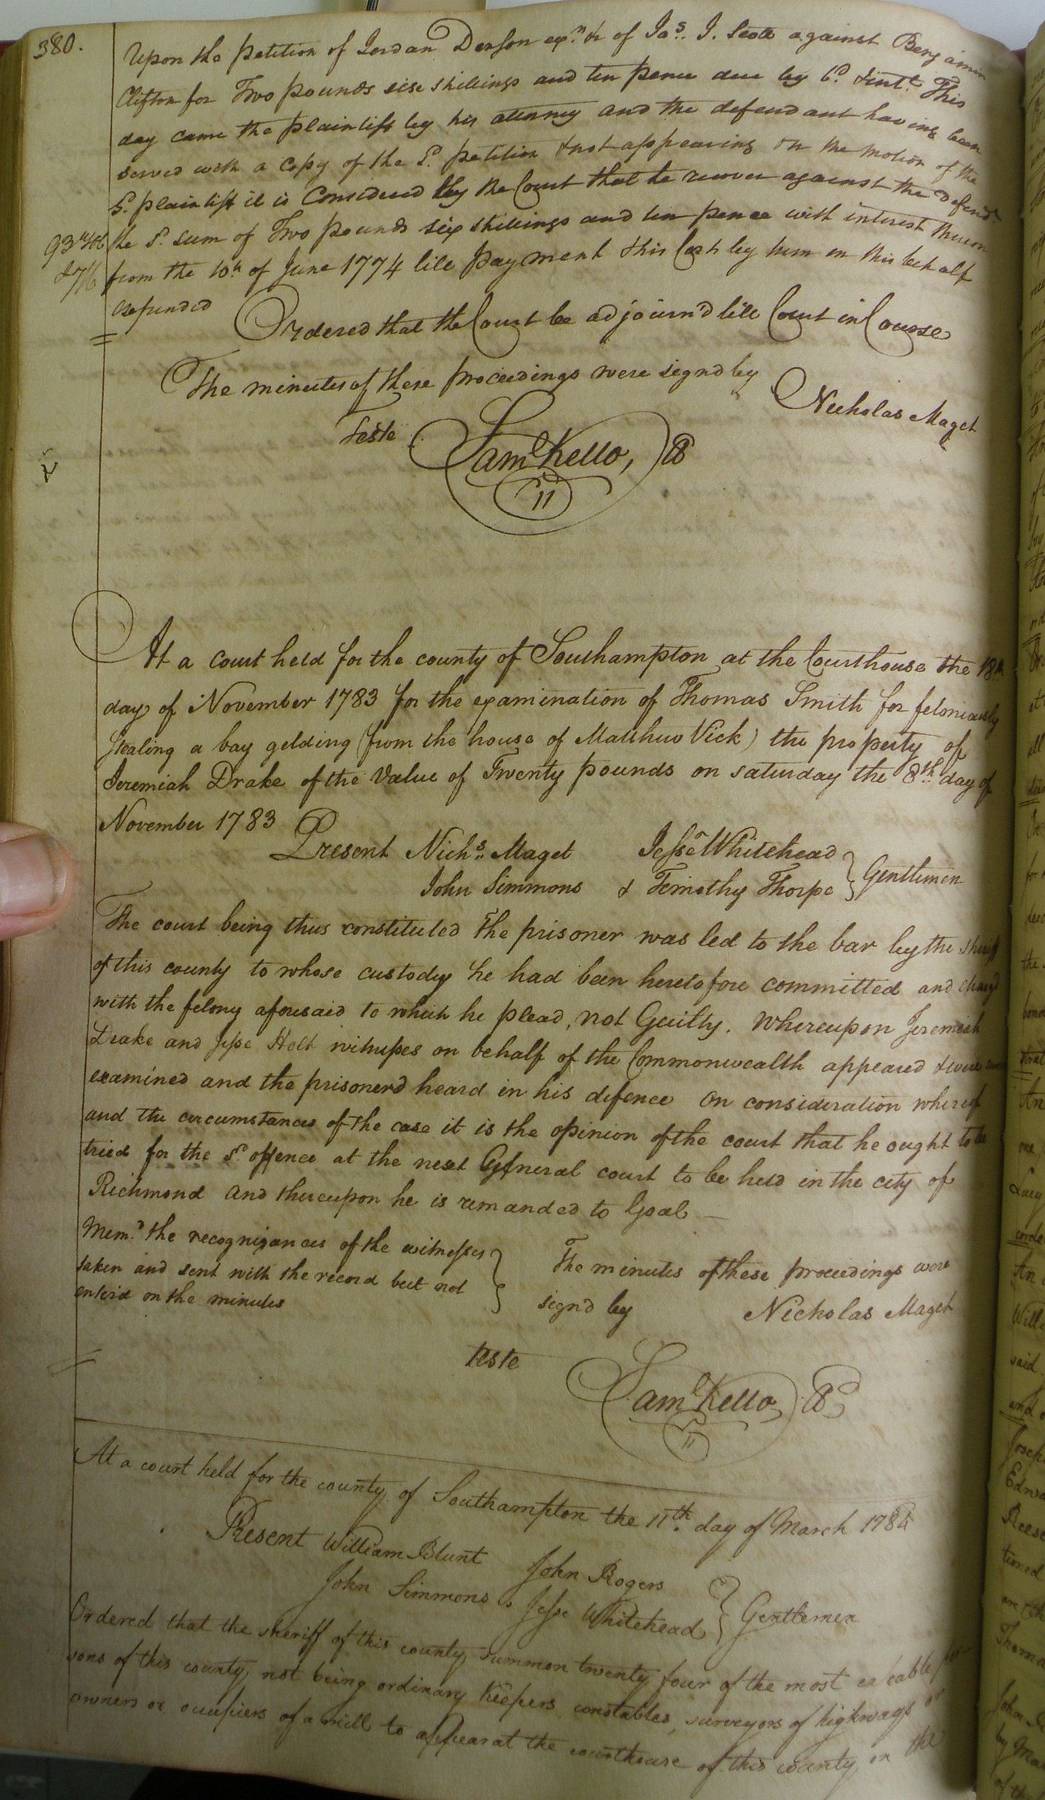 380.
Upon the petition of Jordan Denson exr. &c of Jas. J. Scott against Benjamin
Clifton for Two pounds sise shillings and ten pence due by &int. This
day came the plaintiff by his attorney and the defendant having been
served with a copy of the Sd. petition & not appearing on the motion of the
Sd. plaintiff it is Considered by the Court that he recover against the Defendt
the Sd. sum of Two pounds six shillings and ten pence with interest thereon
from the 10th of June 1774 till payment this Cost by him in this behalf
expended
Ordered that the Court be adjourn'd till Court in Course
The minutes of these proceedings were signd by
Nicholas Maget
Teste
Saml Kello,
At a Court held for the county of Southampton at the Courthouse the 18th
day of November 1783 for the examination of Thomas Smith for feloniously
stealing a bay gelding (from the house of Matthew Vick) the property of
Jeremiah Drake of the Value of Twenty pounds on saturday the 8th day of
November 1783
Present Nichs. Maget Jesse Whitehead
John Simmons & Timothy Thorpe } Gentlemen
The court being thus constituted the prisoner was led to the bar by the sheriff
of this county to whose custody he had been heretofore committed and chargd
with the felony aforesaid to which he plead, not Guilty. Whereupon Jeremiah
Drake and Jesse Holt witnesses on behalf of the Commonwealth appeared & were
examined and the prisonerd heard in his defence On consideration whereof
and the circumstances of the case it is the opinion of the court that he ought to be
tried for the sd. offence at the next General court to be held in the city of
Richmond and thereupon he is remanded to Goal —
Memd. the recognizances of the witnesses
taken and sent with the record but not
enterd on the minutes }
The minutes of these proceedings were
signd by Nicholas Maget
teste
Saml Kello,
At a court held for the county of Southampton the 11th. day of March 1784
Present William Blunt John Rogers
John Simmons & Jesse Whitehead } Gentlemen
Ordered that the sheriff of this county summon twenty four of the most capable per-
sons of this county not being ordinary keepers, constables, surveyors of highways or
owners or occupiers of a mill to appear at the courthouse of this county on the